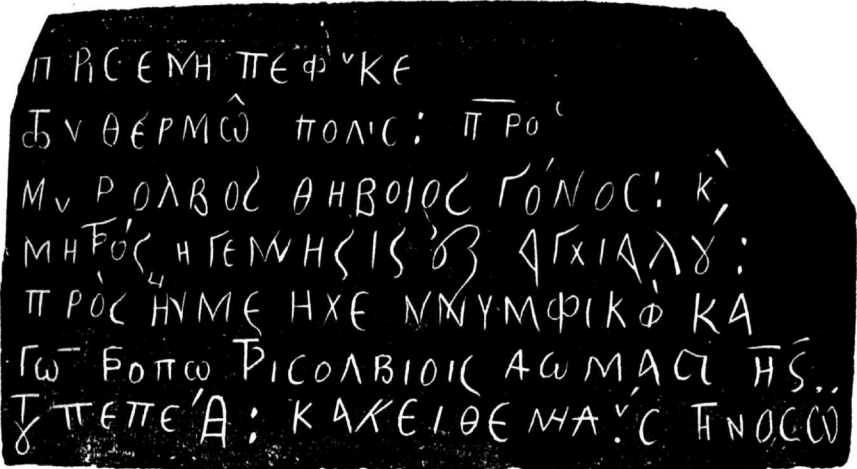 Π ΡΙC ΕΜΗ ΠΕΦΥΚΕ
ΤΩΝ ΘΕΡΜῶ ΠΟΛΙC : ΠΡΟ
ΜΥΡΟΛΒΟC ΘΗΒΟΙΟC ΓΌΝΟC : Κ,
ΜΗΤΡΌC Η ΓΕΝΝΗCΙC ΑΓΧΙΑΛΟΥ :
ΠΡῸC ΗΝ ΜΕ ΗΧΕ ΝΝΥΜΦΙΚΟ ΚΑ
ΓΩ ΤΡΟΠΩ ΤΡΙCΟΛΒΙΟΙC ΔΩΜΑCΙ ΤΗC
ΠΕΠΕΔ : ΚΑΚΕΙΘΕΝ ΤΗΝΟCῶ